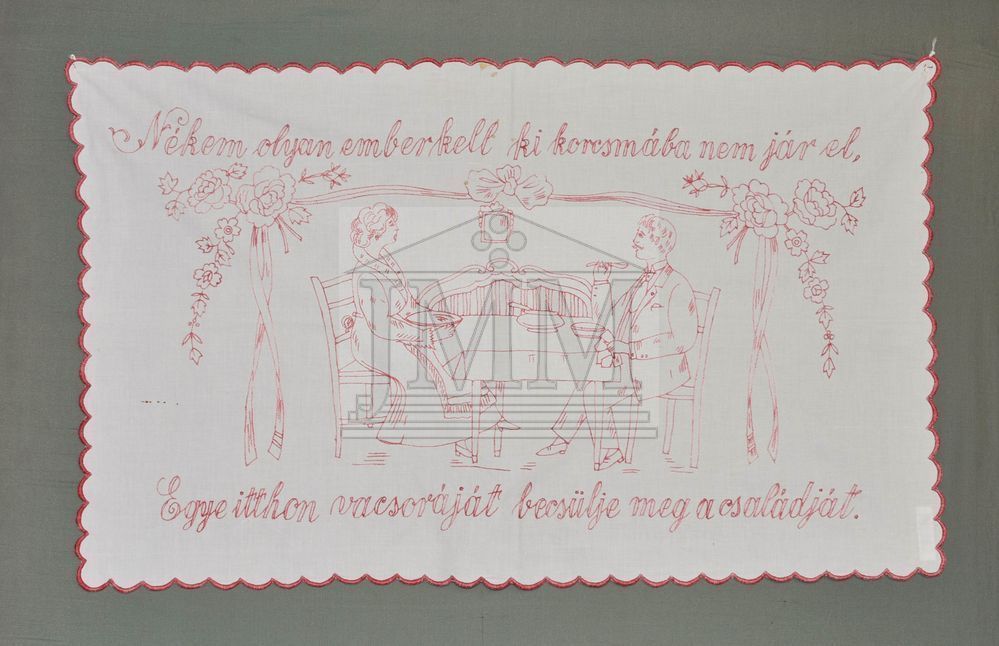 Nékem olyan ember kelt ki korcsmába nem jár el,
JMM
Egye itthon vacsoráját becsülje meg a családját.